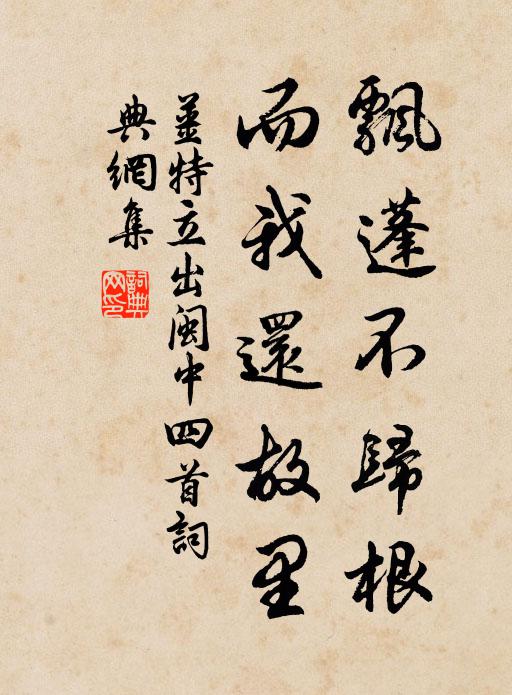 飄蓬不歸根
而我還故里
姜特立出閩中四首詞
典網集
詞典
网印